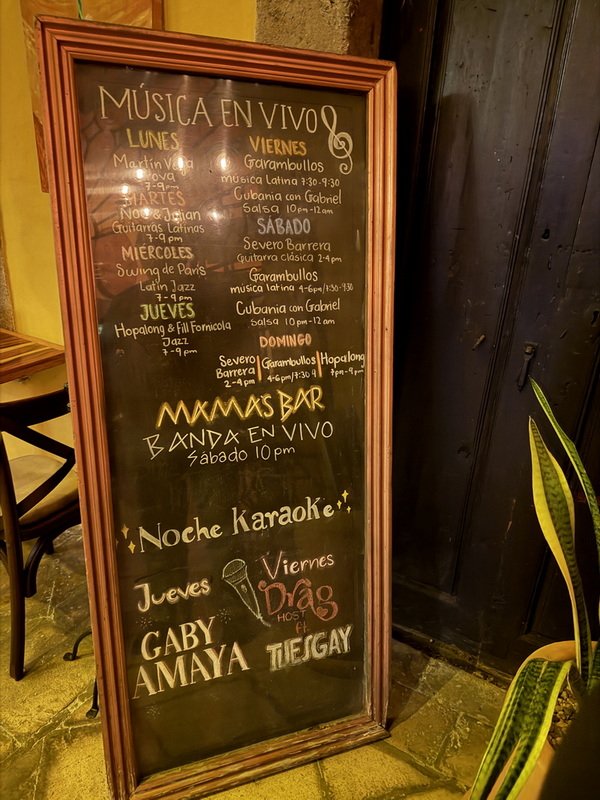 MÚSICA EN VIVO
LUNES
Martín Vega
7-9pm
MARTES
& Julian
Guitarras Latinas
7-9 pm
MIÉRCOLES
Swing de París
Latin Jazz
7-9pm
JUEVES
Hopalong & Fill Fornicola
Jazz
7-9pm
VIERNES
Garambullos
música latina 7:30-9:30
Cubania con Gabriel
Salsa 10pm-12am
SÁBADO
Severo Barrera
Guitarra clásica 2-4pm
Garambullos
música latina 4-6pm/7:30-9:30
Cubania con Gabriel
salsa 10pm-12am
DOMINGO
Severo
Barrera
2-4pm
Garambullos
4-6pm/7:30 9
Hopalong
7pm-9pm
MAMA'S BAR
BANDA EN VIVO
Sábado 10pm
Noche Karaoke
Jueves
GABY
AMAYA
Viernes
Drag
HOST
ft
TUESGAY